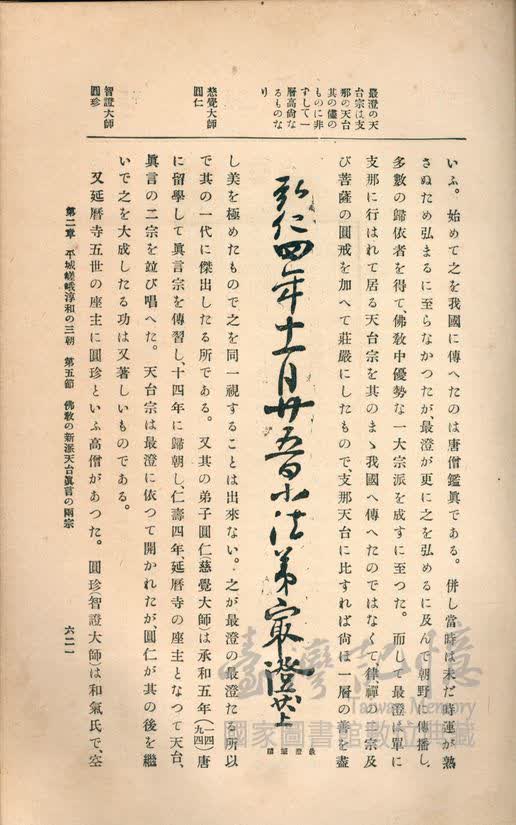 最澄の天
台宗は支
那の天台
其の儘の
ものに非
ずして一
層高尚な
るものな
り
慈覺大師
圓仁
智證大師
圓珍
いふ。始めて之を我國に傳へたのは唐僧鑑眞である。併し當時は未だ時運が熟
さぬため弘まるに至らなかつたが、最澄が更に之を弘めるに及んで朝野に傳播し、
多數の歸依者を得て、佛敎中優勢な一大宗派を成すに至つた。而して最澄は單に
支那に行はれて居る天台宗を其のまゝ我國へ傳へたのではなくて、律禪の二宗及
び菩薩の圓戒を加へて莊嚴にしたもので、支那天台に比すれば尙ほ一層の善を盡
弘仁四年十一月廿五日小法弟最澄狀上
最澄筆蹟
し美を極めたもので之を同一視することは出來ない。之が最澄の最澄たる所以
で其の一代に傑出したる所である。又其の弟子圓仁(慈覺大師)は承和五年(一四九四)唐
に留學して眞言宗を傳習し、十四年に歸朝し、仁壽四年、延曆寺の座主となつて天台、
眞言の二宗を竝び唱へた。天台宗は最澄に依つて開かれたが、圓仁が其の後を繼
いで之を大成したる功は又著しいものである。
又延曆寺五世の座主に圓珍といふ高僧があつた。圓珍(智證大師)は和氣氏で、空
第二章 平城嵯峨淳和の三朝 第五節 佛敎の新派天台眞言の兩宗
六二一
臺灣記憶
Taiwan Memory
國家圖書館數位典藏